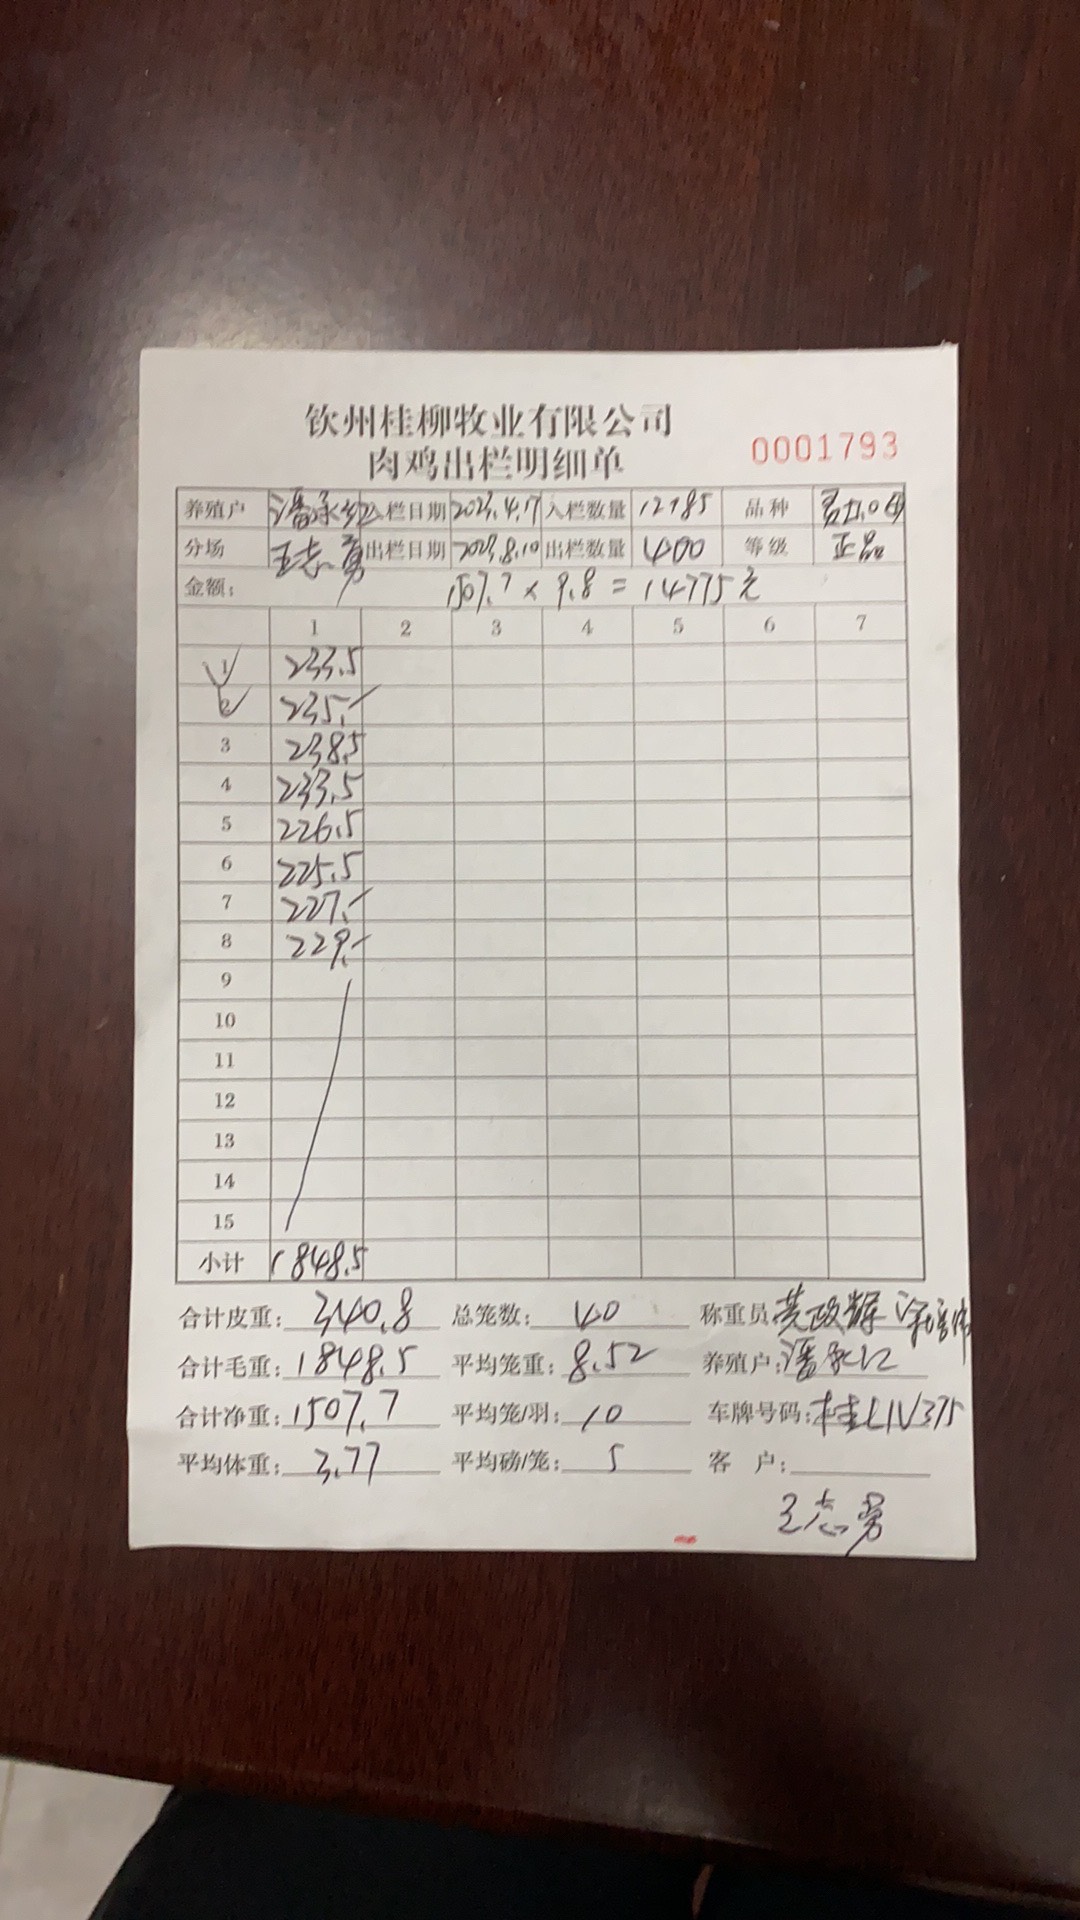 钦州桂柳牧业有限公司
肉鸡出栏明细单
0001793
养殖户 入栏日期 2023.4.17 入栏数量 12785 品种
分场 王志勇 出栏日期 2023.8.10 出栏数量 400 等级 正品
金额: 1507.7 × 9.8 = 14775元
1 2 3 4 5 6 7
1 233.5
2 235.-
3 238.5
4 233.5
5 226.5
6 225.5
7 227.-
8 229.-
9
10
11
12
13
14
15
小计 1848.5
合计皮重: 340.8 总笼数: 40 称重员
合计毛重: 1848.5 平均笼重: 8.52 养殖户:
合计净重: 1507.7 平均笼/羽: 10 车牌号码: 桂L1V375
平均体重: 3.77 平均磅/笼: 5 客 户:
王志勇